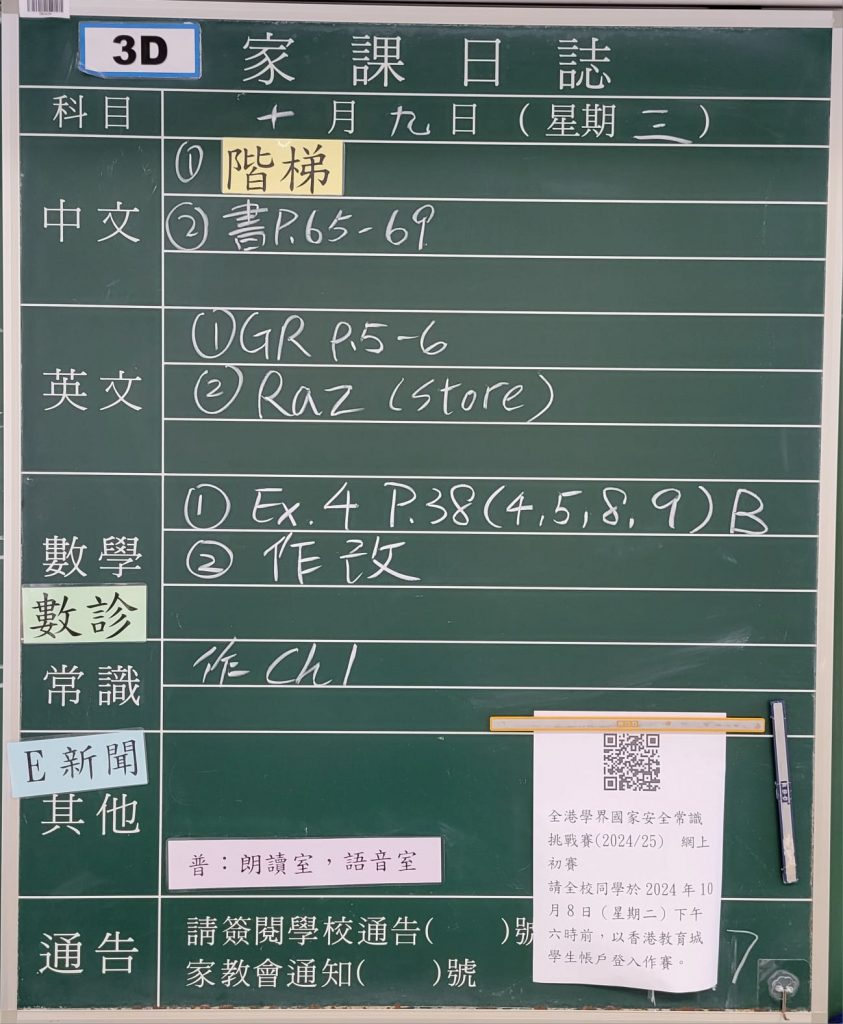 3D
家課日誌
科目 十月九日(星期三)
中文
① 階梯
② 書P.65-69
英文
① GR P.5-6
② Raz (store)
數學
數診
① Ex.4 P.38(4,5,8,9) B
② 作改
常識
作 Ch1
E 新聞
其他
普：朗讀室，語音室
全港學界國家安全常識
挑戰賽(2024/25) 網上
初賽
請全校同學於 2024 年 10
月 8 日（星期二）下午
六時前，以香港教育城
學生帳戶登入作賽。
通告
請簽閱學校通告( )號
家教會通知( )號